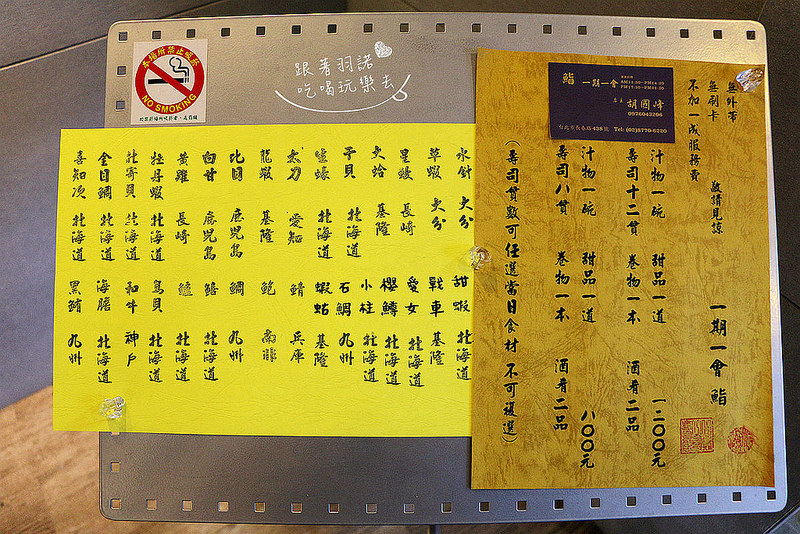 本場所禁止吸菸
NO SMOKING
跟著羽諾
吃喝玩樂去
鮨 一期一會
胡國峰
0976043286
台北市長春路438號 Tel: (02)8770-6220
無外帶
無刷卡
不加一成服務費
敬請見諒
一期一會 鮨
汁物一碗 甜品一道
壽司十二貫 卷物一本 酒肴二品 一二〇〇元
汁物一碗 甜品一道
壽司八貫 卷物一本 酒肴二品 八〇〇元
(壽司貫數可任選當日食材 不可複選)
水針 大分 甜蝦 北海道
草蝦 大分 戰車 基隆
星鰻 長崎 愛女 北海道
大蛤 基隆 櫻鱒 北海道
小柱 北海道
干貝 北海道 石鯛 九州
生蠔 北海道 蝦蛄 基隆
太刀 愛知 鯖 兵庫
龍蝦 基隆 鮑 南非
比目 鹿兒島 鯛 九州
白甘 鹿兒島 北海道
黃雞 長崎 北海道
牡丹蝦 北海道 鳥貝 北海道
北寄貝 北海道 和牛 神戶
金目鯛 北海道 海膽 北海道
喜知次 北海道 黑鮪 九州